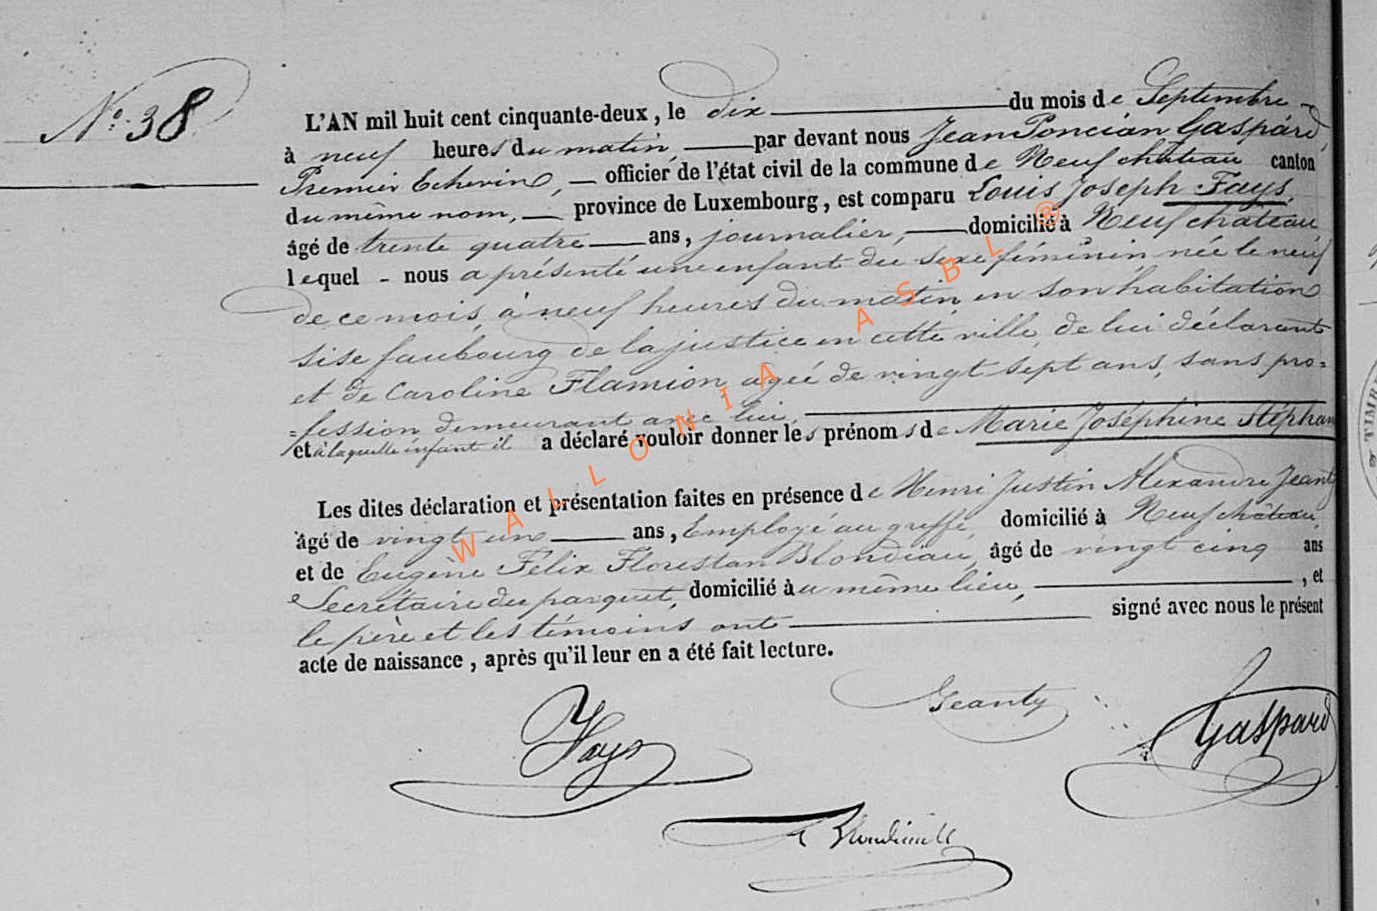 N.º 38
L'AN mil huit cent cinquante-deux, le dix du mois de Septembre
à neuf heures du matin, par devant nous Jean Poncian Gaspard,
Premier Echevin, officier de l'état civil de la commune de Neufchâteau canton
du même nom, province de Luxembourg, est comparu Louis Joseph Fays,
âgé de trente quatre ans, journalier, domicilié à Neufchâteau
lequel - nous a présenté une enfant du sexe féminin née le neuf
de ce mois, à neuf heures du matin, en son habitation
sise faubourg de la justice en cette ville, de lui déclarant
et de Caroline Flamion, agée de vingt sept ans, sans pro=
=fession demeurant avec lui,
et à laquelle enfant il a déclaré vouloir donner les prénoms de Marie Joséphine Stéphan
Les dites déclaration et présentation faites en présence de Henri Justin Alexandre Jeanty
âgé de vingt une ans, Employé au greffe, domicilié à Neufchâteau,
et de Eugène Félix Florestan Blondiau, âgé de vingt cinq ans
Secrétaire du parquet, domicilié au même lieu, , et
le père et les témoins ont signé avec nous le présent
acte de naissance, après qu'il leur en a été fait lecture.
Fays
Jeanty
Gaspard
Blondiau
WALLONIA ASBL ®
& TIMBR